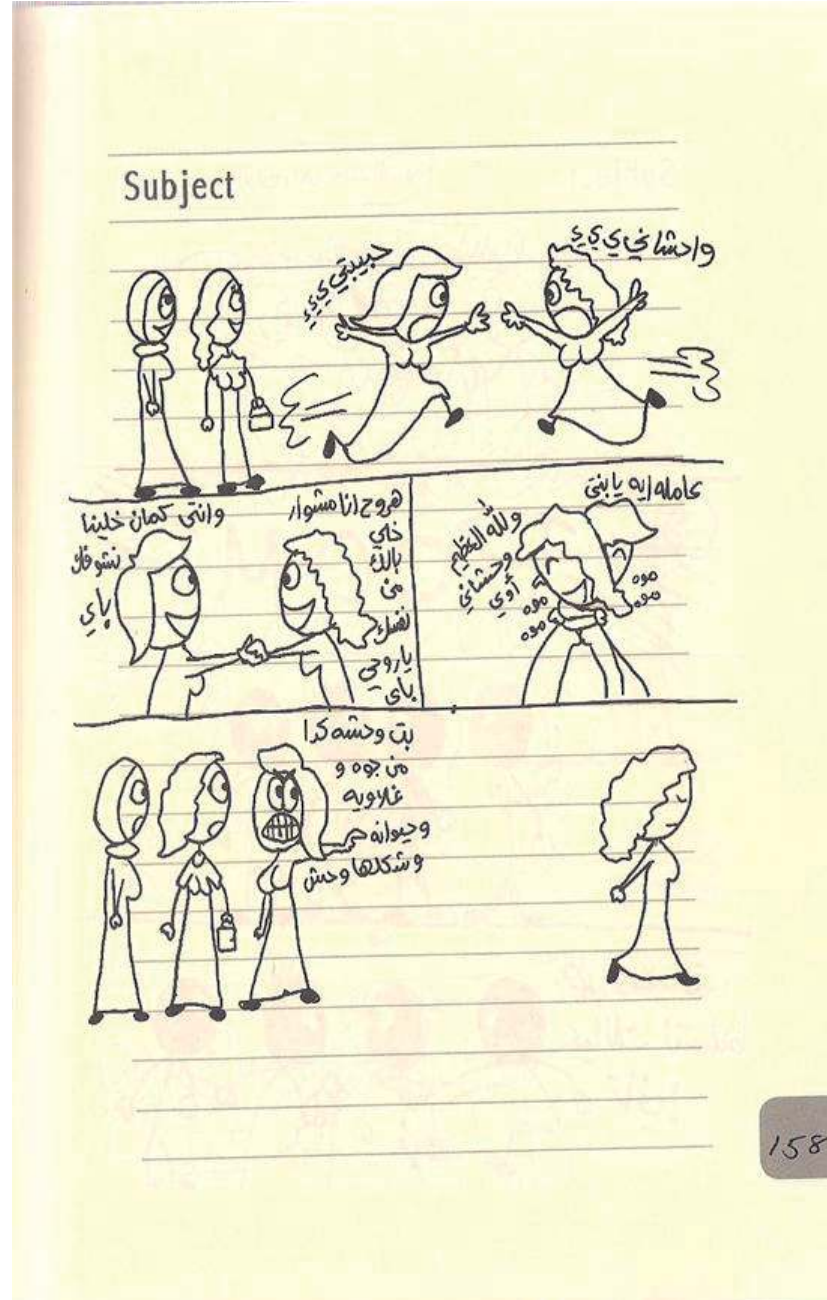 Subject
واحشاني ي ي ي
حبيبتي ي ي ي
عامله ايه يا بنتي
والله العظيم
وحشاني
أوي
موه
موه
موه
موه
موه
موه
هروح انا مشوار
خلي
بالك
من
نفسك
ياروحي
باي
وانتي كمان خلينا
نشوفك
باي
بت وحشه كدا
من جوه و
غلاويه
وحيوانه
وشكلها وحش
158